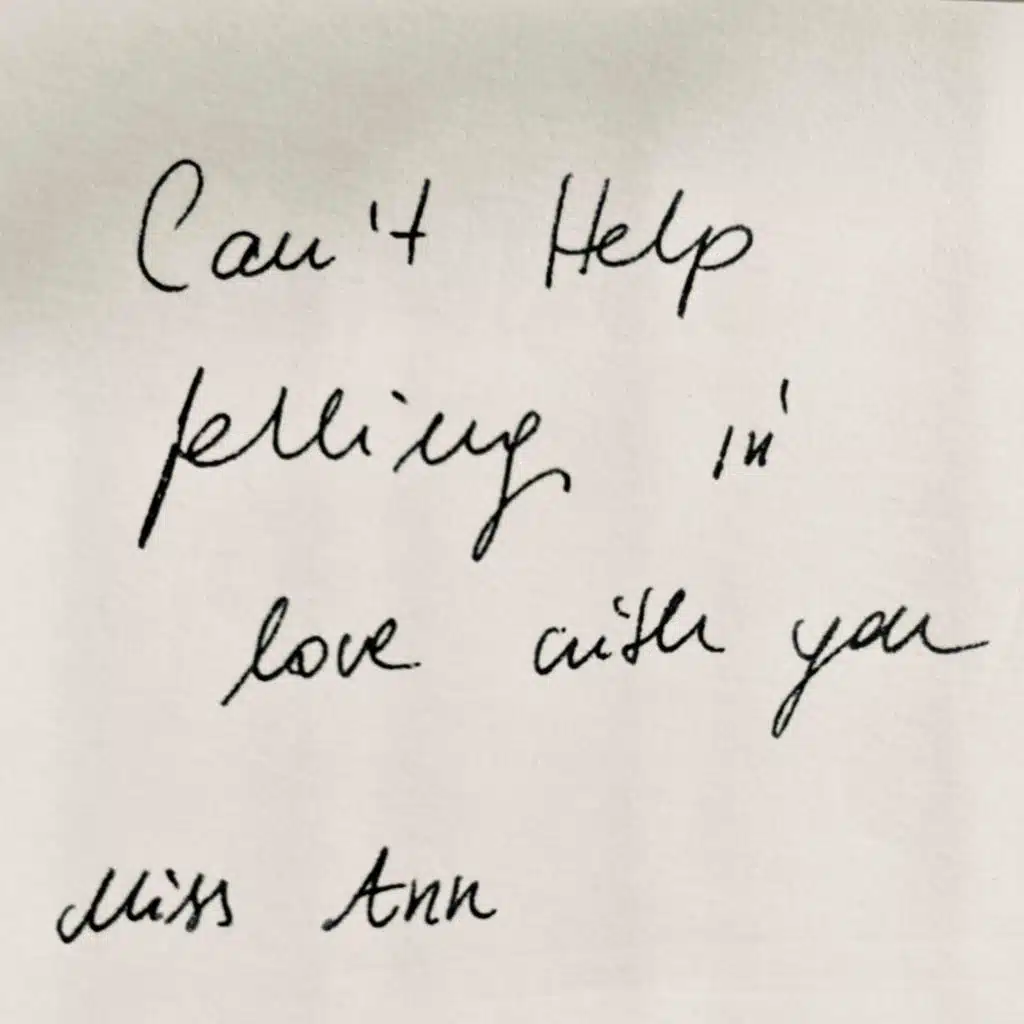 Can't Help
felling in
love with you
Miss Ann